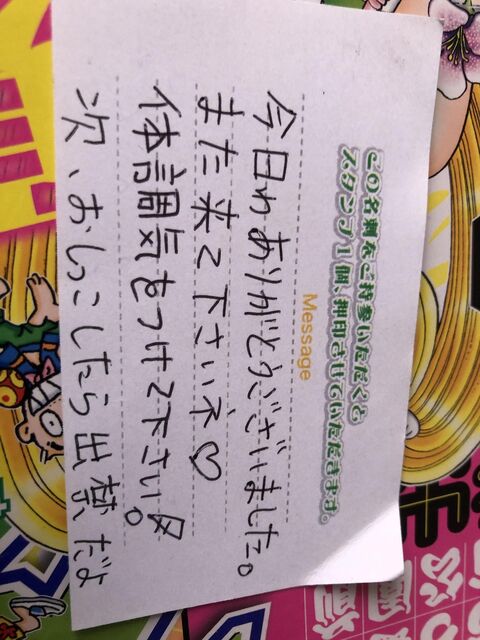 この名刺をご持参いただくと
スタンプ1個、押印させていただきます。
Message
今日わありがとうございました。
また来て下さいネ♡
体調気をつけて下さい
次、おしっこしたら出禁だよ